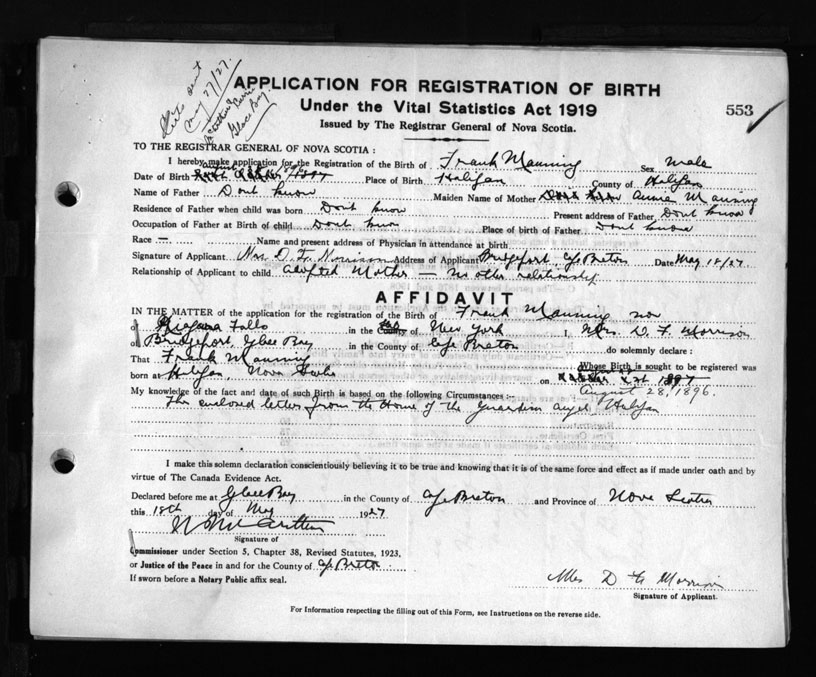 Certs sent
May 27/27.
Glace Bay.
APPLICATION FOR REGISTRATION OF BIRTH
553
Under the Vital Statistics Act 1919
Issued by The Registrar General of Nova Scotia.
TO THE REGISTRAR GENERAL OF NOVA SCOTIA :
I hereby make application for the Registration of the Birth of Frank Manning Sex Male
Date of Birth Place of Birth Halifax County of Halifax
Name of Father Dont know Maiden Name of Mother Annie Manning
Residence of Father when child was born Dont know Present address of Father, Dont know
Occupation of Father at Birth of child Dont know Place of birth of Father Dont know
Race — Name and present address of Physician in attendance at birth
Signature of Applicant Mrs. D. F. Morrison Address of Applicant Bridgeport, Cape Breton Date May 18/27.
Relationship of Applicant to child adopted Mother — No other relationship
AFFIDAVIT
IN THE MATTER of the application for the registration of the Birth of Frank Manning now
of Niagara Falls in the County of New York I, Mrs. D. F. Morrison
of Bridgeport, Glace Bay in the County of Cape Breton do solemnly declare :
That Frank Manning Whose Birth is sought to be registered was
born at Halifax, Nova Scotia on
August 28, 1896.
My knowledge of the fact and date of such Birth is based on the following Circumstances :-
The enclosed letter from the Home of the Guardian Angel Halifax
I make this solemn declaration conscientiously believing it to be true and knowing that it is of the same force and effect as if made under oath and by
virtue of The Canada Evidence Act.
Declared before me at Glace Bay in the County of Cape Breton and Province of Nova Scotia
this 18th day of May 1927
Signature of
Commissioner under Section 5, Chapter 38, Revised Statutes, 1923.
or Justice of the Peace in and for the County of Cape Breton
If sworn before a Notary Public affix seal.
Mrs D F Morrison
Signature of Applicant.
For Information respecting the filling out of this Form, see Instructions on the reverse side.